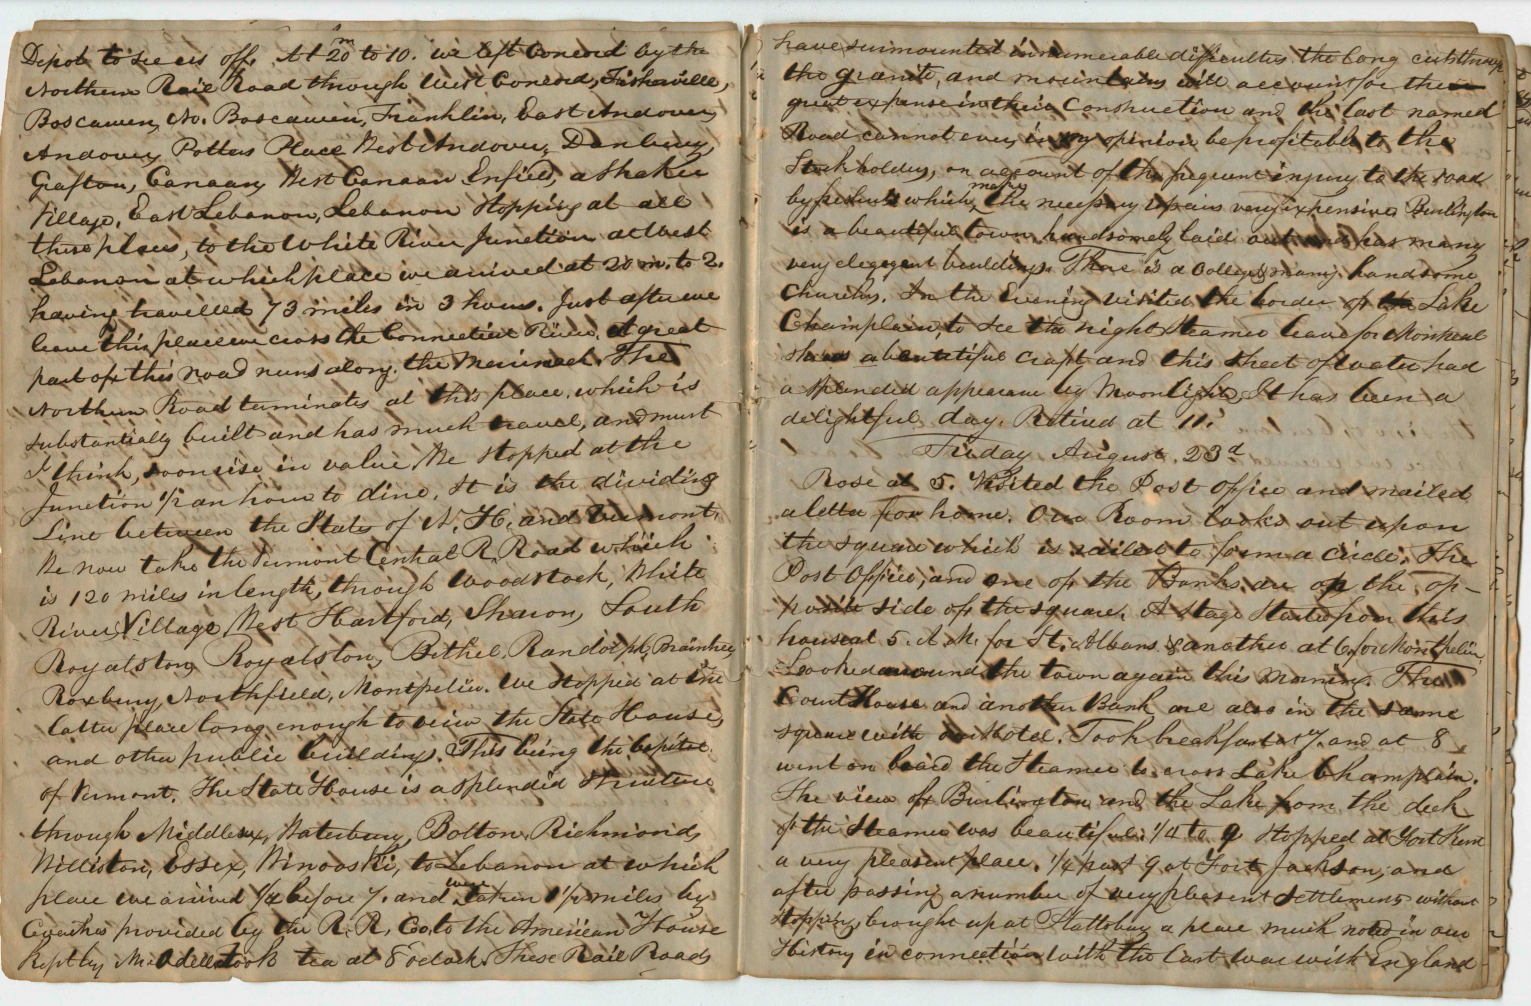 Depot to see us off. At 20 m to 10. we left Concord by the
Northern Rail Road through West Concord, Fisherville,
Boscawen, No. Boscawen, Franklin, East Andover,
Andover, Potters Place West Andover, Danbury,
Grafton, Canaan, West Canaan Enfield, a Shaker
Village, East Lebanon, Lebanon stopping at all
these places, to the White River Junction at West
Lebanon at which place we arrived at 20 m. to 2.
having travelled 73 miles in 3 hours. Just after we
leave this place we cross the Connecticut River. A great
part of this road runs along the Merrimack. The
Northern Road terminates at this place, which is
substantially built and has much travel, and must
I think, soon rise in value. We stopped at the
Junction 1/2 an hour to dine. It is the dividing
Line between the State of N. H. and Vermont.
We now take the Vermont Central R. Road which
is 120 miles in length, through Woodstock, White
River Village, West Hartford, Sharon, South
Royalston, Royalston, Bethel, Randolph, Braintree,
Roxbury, Northfield, Montpelier. We stopped at the
latter place long enough to view the State House,
and other public buildings. This being the Capital
of Vermont. The State House is a splendid structure
through Middlesex, Waterbury, Bolton, Richmond,
Williston, Essex, Winooski, to Lebanon at which
place we arrived 1/4 before 7. and were taken 1 1/2 miles by
Coaches provided by the R. R. Co. to the American House
Kept by Mr. took tea at 8 oclock. These Rail Roads
have surmounted innumerable difficulties the long cuts through
the granite, and mountains will account for the
great expense in their Construction and the last named
Road cannot ever, in my opinion be profitable to the
Stockholders, on account of the frequent injury to the road
by which makes the necessary repairs very expensive. Burlington
is a beautiful town, handsomely laid out and has many
very elegegent buildings. There is a College & many handsome
Churches. In the Evening visited the border of the Lake
Champlain, to see the night Steamer leave for Montreal
she is a beautiful craft, and this sheet of water had
a splendid appearance by Moonlight. It has been a
delightful day. Retired at 11.
Friday August. 23d
Rose at 5. Visited the Post Office and mailed
a letter for home. Our Room looks out upon
the square which is railed to form a circle. The
Post Office, and one of the Banks are on the op-
posite side of the square. A stage starts from this
house at 5. A. M. for St. Albans & another at 6. for Montpelier.
Looked around the town again this Morning. The
Court House and another Bank are also in the same
square with our Hotel. Took breakfast at 7. and at 8
went on board the Steamer to cross Lake Champlain.
The view of Burlington and the Lake from the deck
of the Steamer was beautiful. 1/4 to 9 stopped at Port Kent
a very pleasant place. 1/4 past 9 at Port Jackson, and
after passing a number of very pleasent settlements without
stopping, brought up at Plattsburg a place much noted in our
History in connection with the last war with England